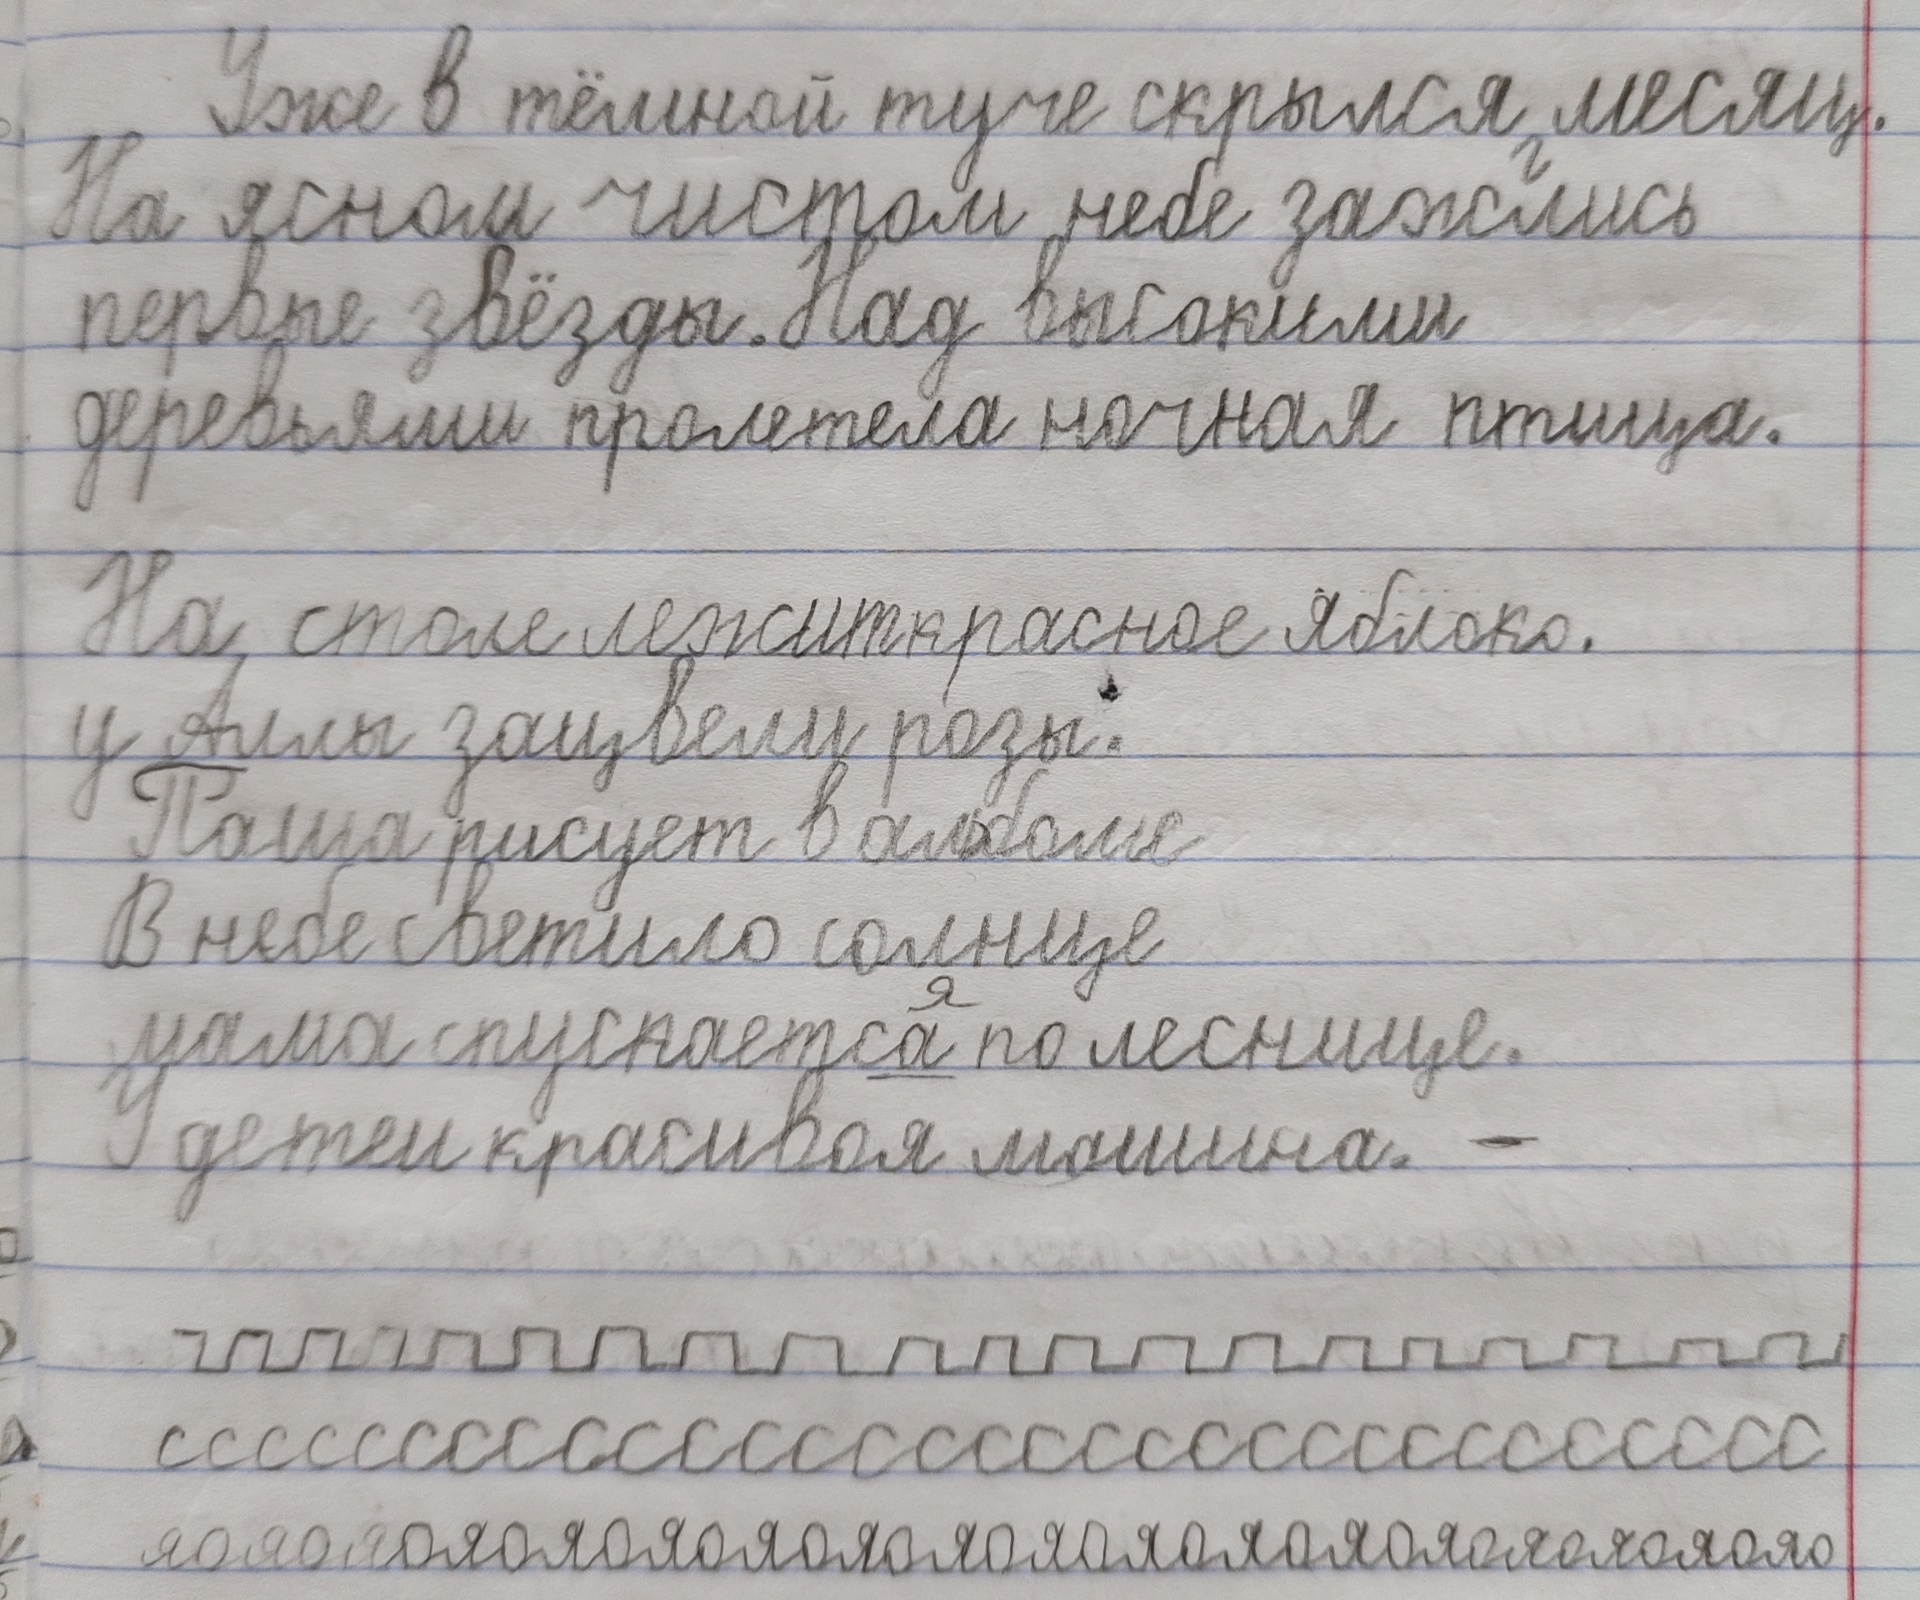 Уже в тёмной туче скрылся месяц.
На ясном чистом небе зажглись
первые звёзды. Над высокими
деревьями пролетела ночная птица.
На столе лежиткрасное яблоко.
у Аллы зацвели розы.
Паша рисует в альбоме
В небе светило солнце
мама спускается по леснице.
У детеи красивоя мошина. -
сссссссссссссссссссссссссссссс
яояояояояояояояояояояояояояояояояояо